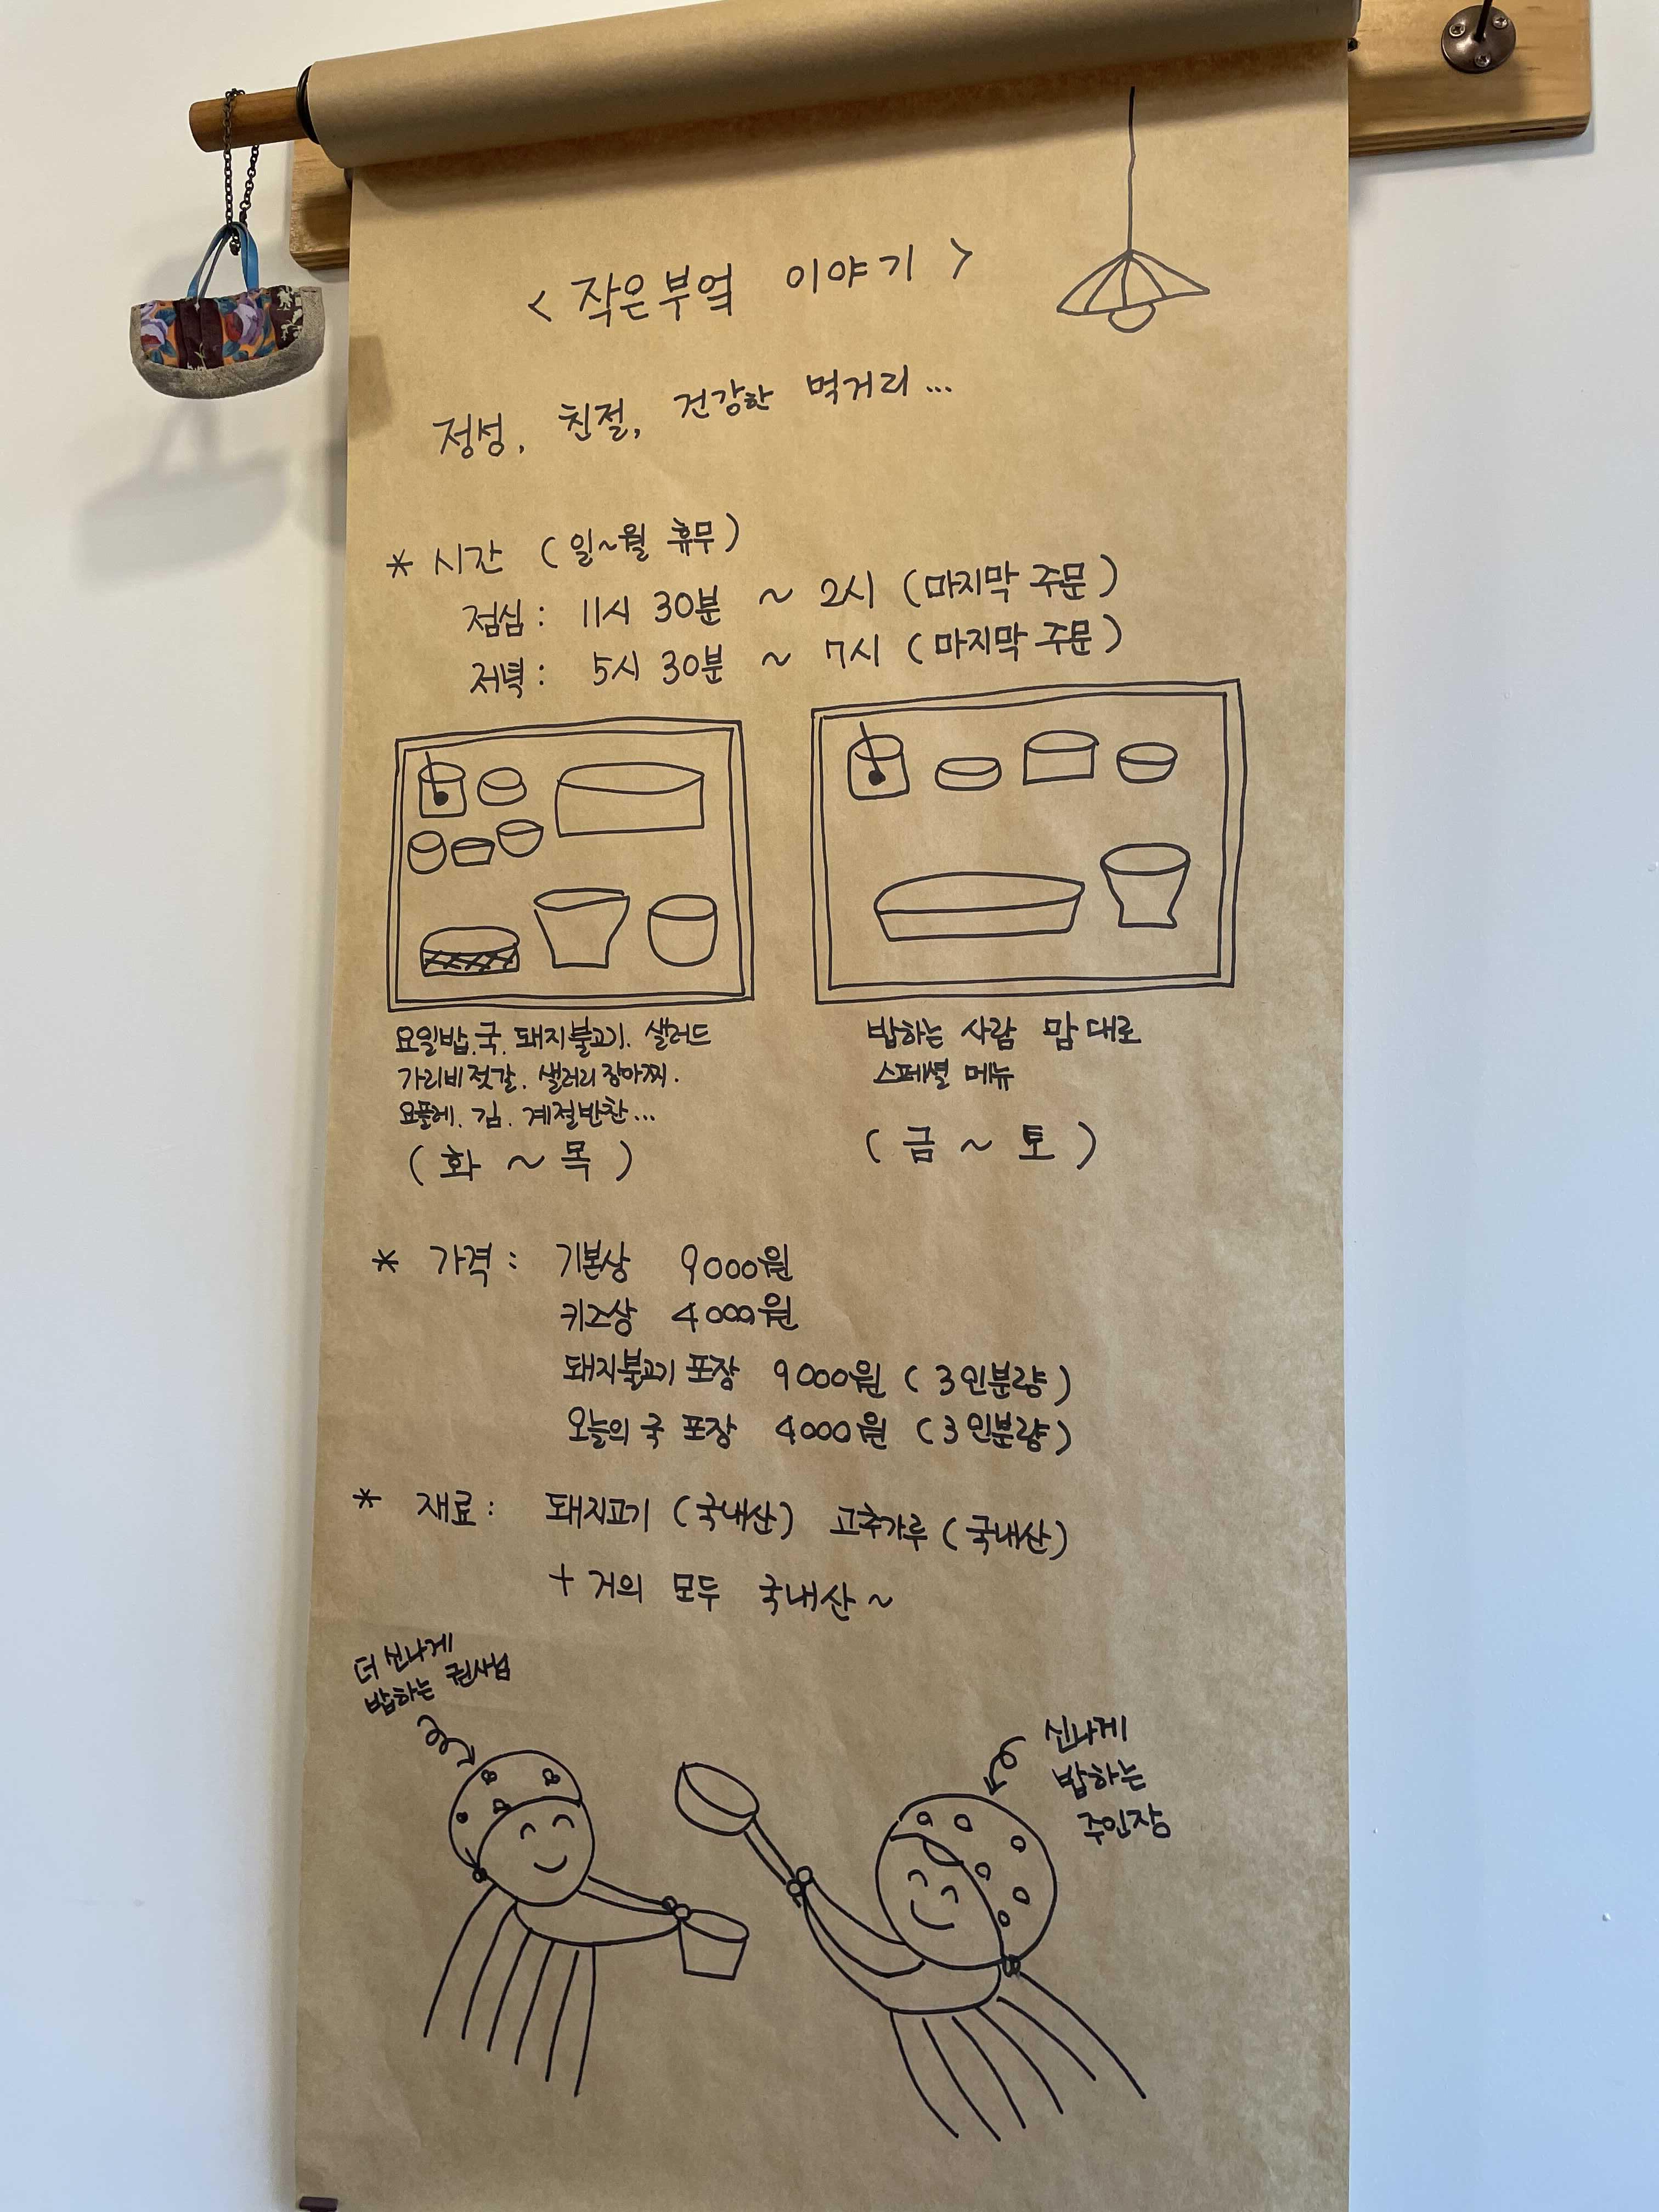 < 작은부엌 이야기 >
정성, 친절, 건강한 먹거리...
* 시간 (일~월 휴무)
점심: 11시 30분 ~ 2시 (마지막 주문)
저녁: 5시 30분 ~ 7시 (마지막 주문)
요일밥.국.돼지불고기. 샐러드
가리비젓갈. 샐러리장아찌.
요플레. 김. 계절반찬...
(화 ~ 목)
밥하는 사람 맘대로
스페셜 메뉴
(금 ~ 토)
* 가격: 기본상 9000원
키즈상 4000원
돼지불고기 포장 9000원 (3인분량)
오늘의 국 포장 4000원 (3인분량)
* 재료: 돼지고기 (국내산) 고추가루 (국내산)
+ 거의 모두 국내산~
더 신나게
밥하는 권사님
신나게
밥하는
주인장